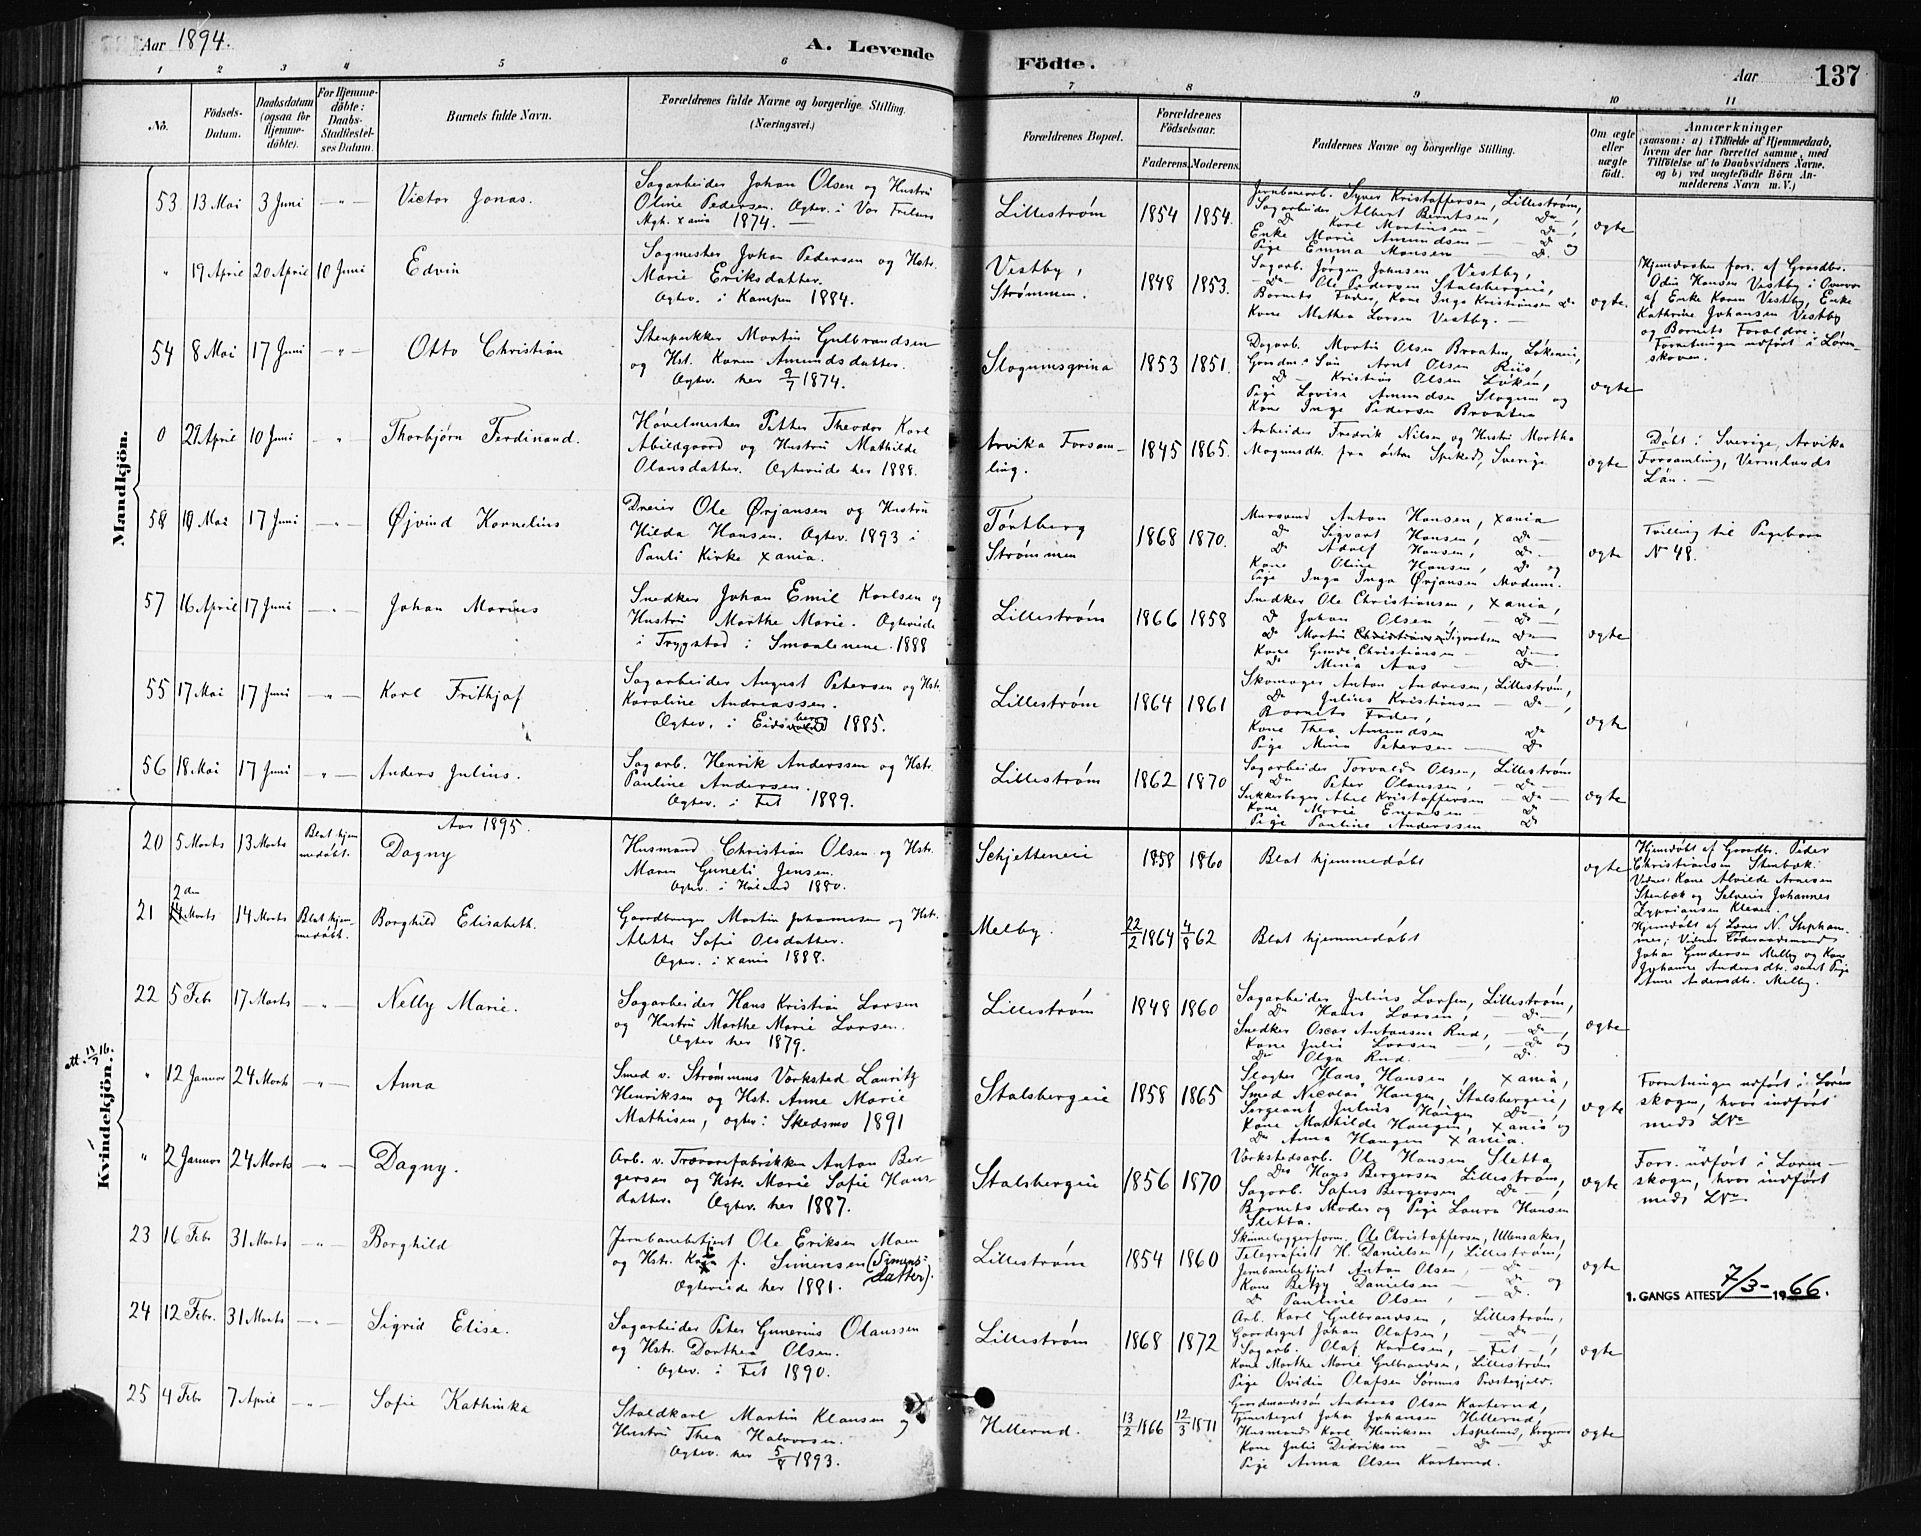 Aar 1894.
A. Levende
Födte.
Aar
137
1 2 3 4 5 6 7 8 9 10 11
No.
Födsels-
Datum.
Daabsdatum
(ogsaa for
Hjemme-
döbte).
For Hjemme-
döbte:
Daabs-
Stadfæstel-
ses Datum.
Barnets fulde Navn.
Forældrenes fulde Navne og borgerlige Stilling.
(Næringsvei.)
Forældrenes Bopæl.
Forældrenes
Födselsaar.
Faderens. Moderens.
Faddernes Navne og borgerlige Stilling.
Om ægte
eller
uægte
födt.
Anmærkninger
(saasom: a) i Tilfælde af Hjemmedaab,
hvem der har forrettet samme, med
Tilföielse af to Daabsvidners Navne,
og b) ved uægtefödte Börn An-
melderens Navn m. V.)
Mandkjön.
53 13 Mai 3 Juni - " - Victor Jonas.
Sagarbeider Johan Olsen og Hustru
Oline Pedersen. Ægtev. i Vor Frelsers
Mgh. Xania 1874. —
Lillestrøm 1854 1854.
Jernbanearb. Syver Kristoffersen, Lillestrøm,
Sagarbeider Albert Berntsen, Do —,
Do Karl Martinsen — Do,
Enke Marie Amundsen — Do og
Pige Emma Hansen — Do.
ægte
" 19 April 20 April 10 Juni Edvin
Sagmester Johan Pedersen og Hstr.
Marie Eriksdatter.
Ægtev. i Kampen 1884.
Vestby,
Strømmen. 1848 1853.
Sagarb. Jørgen Johnsen Vestby,
— Do — Ole Pedersen Stalsbergeie,
Barnets Fader, Kone Inga Kristiansen Do
Kone Mathea Larsen Vestby. —
ægte.
Hjemdøbt af Gaardbr.
Odin Hansen Vestby
af Enke Karen Vestby, Enke
Kathrine Johansen Vestby
og Barnets Forældre.
Forretningen udført i Løren-
skoven.
54 8 Mai 17 Juni - " - Otto Christian
Stenpukker Martin Gulbrandsen
og Hst. Karen Amundsdatter.
Ægtev. her 9/7 1874.
Slogumsgrina 1853 1851.
Dagarb. Martin Olsen Braaten, Løkeneie,
Gaardm. Søn Arnt Olsen Riis,
Do — Kristian Olsen Løken,
Pige Lovise Amundsen Slogum og
Kone Inge Pedersen Braaten
ægte
0 29 April 10 Juni - " - Thorbjørn Ferdinand.
Høvelmester Petter Theodor Karl
Abildgaard og Hustru Mathilde
Olausdatter. Ægteviede her 1888.
Arvika Forsam-
ling. 1845 1865.
Arbeider Fredrik Nilsen og Hustru Martha
Magnusdt. fra Sverige
ægte
Døbt i Sverige, Arvika
Forsamling, Vermlands
Län. —
58 19 Mai 17 Juni - " - Øjvind Kornelius
Dreier Ole Ørjansen og Hustru
Hilda Hansen. Ægtev. 1893 i
Pauli Kirke Xania.
Tørtberg
Strømmen 1868 1870.
Mursvend Anton Hansen, Xania
Do Sigvart Hansen, Do —
Do Adolf Hansen, Do —
Kone Oline Hansen, Do og
Pige Inga Inga Ørjansen Modum.
ægte
Tvilling til Pigebarn
No 48.
57 16 April 17 Juni - " - Johan Marius
Snedker Johan Emil Karlsen og
Hustru Marthe Marie. Ægteviede
i Trygstad i Smaalenene. 1888
Lillestrøm 1866 1858
Snedker Ole Christiansen, Xania,
Do Johan Olsen, Do —
Do Martin Christiansen Sigvartsen Do
Kone Gunda Christiansen — Do —
Do Mina Aas — Do —.
ægte
55 17 Mai 17 Juni - " - Karl Frithjof
Sagarbeider August Petersen og Hst.
Karoline Andreassen.
Ægtev. i Eidsberg 1885.
Lillestrøm 1864 1861
Skomager Anton Andresen, Lillestrøm,
Do Julius Kristiansen — Do —,
Barnets Fader,
Kone Thea Amundsen Do
Pige Mina Petersen — Do
ægte
56 18 Mai 17 Juni - " - Anders Julius.
Sagarb. Henrik Anderssen og Hst.
Pauline Andersen.
Ægtev. i Fet 1889.
Lillestrøm 1862 1870
Sagarbeider Torvald Olsen, Lillestrøm
— Do Peter Olaussen, — Do —
Sukkerbager Abel Kristoffersen — Do —
Kone Marie Enersen — Do
Pige Pauline Anderssen Do
ægte
Aar 1895.
Kvindekjön.
att. 11/7 16.
20 5 Marts 13 Marts Blot hjem
medøbt. Dagny
Husmand Christian Olsen og Hst.
Maren Guneli Jensen.
Ægtev. i Høland 1880.
Schjetteneie 1858 1860 Blot hjemmedøbt ægte
Hjemdøbt af Gaardbr. Peder
Christiansen Stenbæk.
Vidner: Kone Alvilde Arnesen
Stenbæk og Selveier Johannes
Zyprianson Kleven.
21 2 den Marts 14 Marts Blot hjem-
medøbt. Borghild Elisabeth.
Gaardbruger Martin Johannesen og Hst.
Alette Sofie Olsdatter.
Ægtev. i Xania 1888.
Melby. 22/2 1864 4/8 62 Blot hjemmedøbt
Hjemdøbt af Lærer N. Stephan-
sen; Vidner Føderaadsmand
Johan Gundersen Melby og Kone
Johanne Andersdt. samt Pige
Anne Andersdt. Melby.
22 5 Febr 17 Marts - " - Nelly Marie.
Sagarbeider Hans Kristian Larsen
og Hustru Marthe Marie Larsen.
Ægtev her 1879.
Lillestrøm 1848 1860
Sagarbeider Julius Larsen, Lillestrøm,
Do Hans Larsen, — Do —
Snedker Oscar Antonsen Rud, — Do —,
Kone Julie Larsen — , — Do og
Do Olga Rud. — Do.
ægte
" 12 Januar 24 Marts - " - Anna
Smed v. Strømmens Værksted Lauritz
Henriksen og Hst. Anne Marie
Mathisen, ægtev: Skedsmo 1891
Stalsbergeie 1858 1865
Slagter Hans Hansen, Xania,
Smed Nicolai Haugen, Stalsbergeie,
Sergeant Julius Haugen Do —,
Kone Mathilde Haugen, Xania og
Do Anna Haugen Xania.
ægte
Forretningen udført i Løren
skogen, hvor indført
meds LNo
" 2 Januar 24 Marts - " - Dagny.
Arb. v. Trævarefabrikken Anton Ber-
gersen og Hst. Marie Sofie Hans-
datter. Ægtev. her 1887.
Stalsbergeie 1856 1870
Værkstedsarb. Ole Hansen Sletta
Do Hans Bergersen Lillestrøm,
Sagarb. Sofus Bergersen Do —,
Barnets Moder og Pige Laura Hansen
Sletta.
ægte
Forr. udført i Løren—
skogen, hvor indført
meds LNo
23 16 Febr 31 Marts - " - Borghild
Jernbanebetjent Ole Eriksen Moen
og Hst. f. Simensen (Simens-
datter).
Ægteviede her 1881.
Lillestrøm 1854 1860
Skinnelæggerform. Ole Christoffersen, Ullensaker,
Telegrafist H. Danielsen, Lillestrøm,
Jernbanebetjent Anton Olsen, — Do —
Kone Betzy Danielsen — Do og
Do Pauline Olsen, — Do.
ægte
1. GANGS ATTEST 7/3- 1966.
24 12 Febr. 31 Marts - " - Sigrid Elise.
Sagarbeider Peter Gunerius Olaussen
og Hstr. Dorthea Olsen.
Ægtev. i Fet 1890.
Lillestrøm 1868 1872
Arb. Karl Gulbrandsen, Lillestrøm,
Gaardsgut Johan Olafsen, — Do —
Sagarb. Olaf Karlsen, — Fet —,
Kone Marthe Marie Gulbrandsen, Lillestrøm
Pige Ovidia Olafsen Sørums Præstegjeld.
ægte
25 4 Febr 7 April - " - Sofie Kathinka
Staldkarl Martin Klausen og
Hustru Thea Halvorsen.
Ægtev. her 5/8 1893.
Hellerud. 13/2 1866 12/3 1871
Gaardmandssøn Andreas Olsen Karterud,
Tjenstegut Johan Johansen Hillerud,
Husmand Karl Henriksen Aspelund,
Kone Julie Didriksen — Do — Do
Pige Anna Olsen Karterud.
ægte